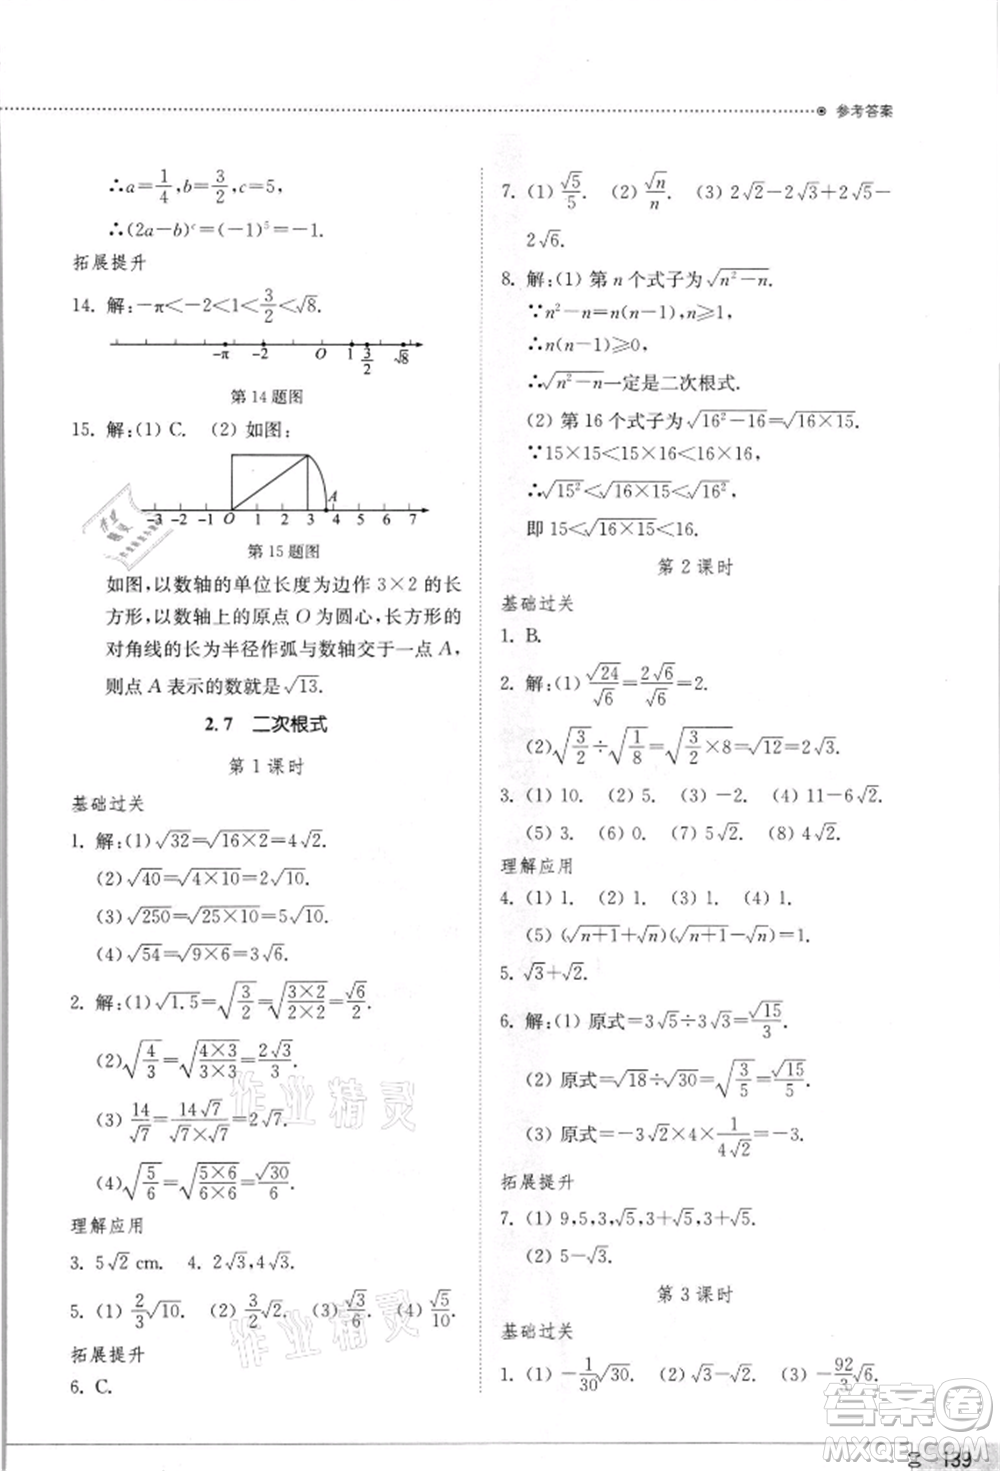 参考答案
∴a=1/4,b=3/2,c=5,
∴(2a-b)^c=(-1)^5=-1.
拓展提升
14. 解:-π<-2<1<3/2<√8.
-π -2 O 1 3/2 √8
第14题图
15. 解:(1) C. (2) 如图:
A
-3 -2 -1 O 1 2 3 4 5 6 7
第15题图
如图,以数轴的单位长度为边作 3×2 的长
方形,以数轴上的原点 O 为圆心,长方形的
对角线的长为半径作弧与数轴交于一点 A,
则点 A 表示的数就是√13.
2.7 二次根式
第1课时
基础过关
1. 解:(1) √32=√(16×2)=4√2.
(2) √40=√(4×10)=2√10.
(3) √250=√(25×10)=5√10.
(4) √54=√(9×6)=3√6.
2. 解:(1) √1.5=√(3/2)=√((3×2)/(2×2))=√6/2.
(2) √(4/3)=√((4×3)/(3×3))=2√3/3.
(3) 14/√7=14√7/(√7×√7)=2√7.
(4) √(5/6)=√((5×6)/(6×6))=√30/6.
理解应用
3. 5√2 cm. 4. 2√3,4√3.
5. (1) 2/3√10. (2) 3/2√2. (3) √3/6. (4) √5/10.
拓展提升
6. C.
7. (1) √5/5. (2) √n/n. (3) 2√2-2√3+2√5-
2√6.
8. 解:(1) 第 n 个式子为√(n²-n).
∵n²-n=n(n-1),n≥1,
∴n(n-1)≥0.
∴√(n²-n)一定是二次根式.
(2) 第 16 个式子为√(16²-16)=√(16×15).
∵15×15<15×16<16×16,
∴√15²<√(16×15)<√16²,
即 15<√(16×15)<16.
第2课时
基础过关
1. B.
2. 解:(1) √24/√6=2√6/√6=2.
(2) √(3/2)÷√(1/8)=√(3/2×8)=√12=2√3.
3. (1) 10. (2) 5. (3) -2. (4) 11-6√2.
(5) 3. (6) 0. (7) 5√2. (8) 4√2.
理解应用
4. (1) 1. (2) 1. (3) 1. (4) 1.
(5) (√(n+1)+√n)(√(n+1)-√n)=1.
5. √3+√2.
6. 解:(1) 原式=3√5÷3√3=√15/3.
(2) 原式=√18÷√30=√(3/5)=√15/5.
(3) 原式=-3√2×4×1/(4√2)=-3.
拓展提升
7. (1) 9,5,3,√5,3+√5,3+√5.
(2) 5-√3.
第3课时
基础过关
1. (1) -1/30√30. (2) √3-√2. (3) -92/3√3.
139
作业精灵
作业精灵
答案卷
MXQE.COM